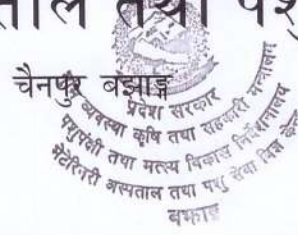 ताल तथा पशु
चैनपुर बझाङ्ग
प्रदेश सरकार
व्यवस्था कृषि तथा सहकारी मन्त्रालय
पशुपंक्षी तथा मत्स्य विकास निर्देशनालय
भेटेरिनरी अस्पताल तथा पशु सेवा विज्ञ केन्द्र
बझाङ